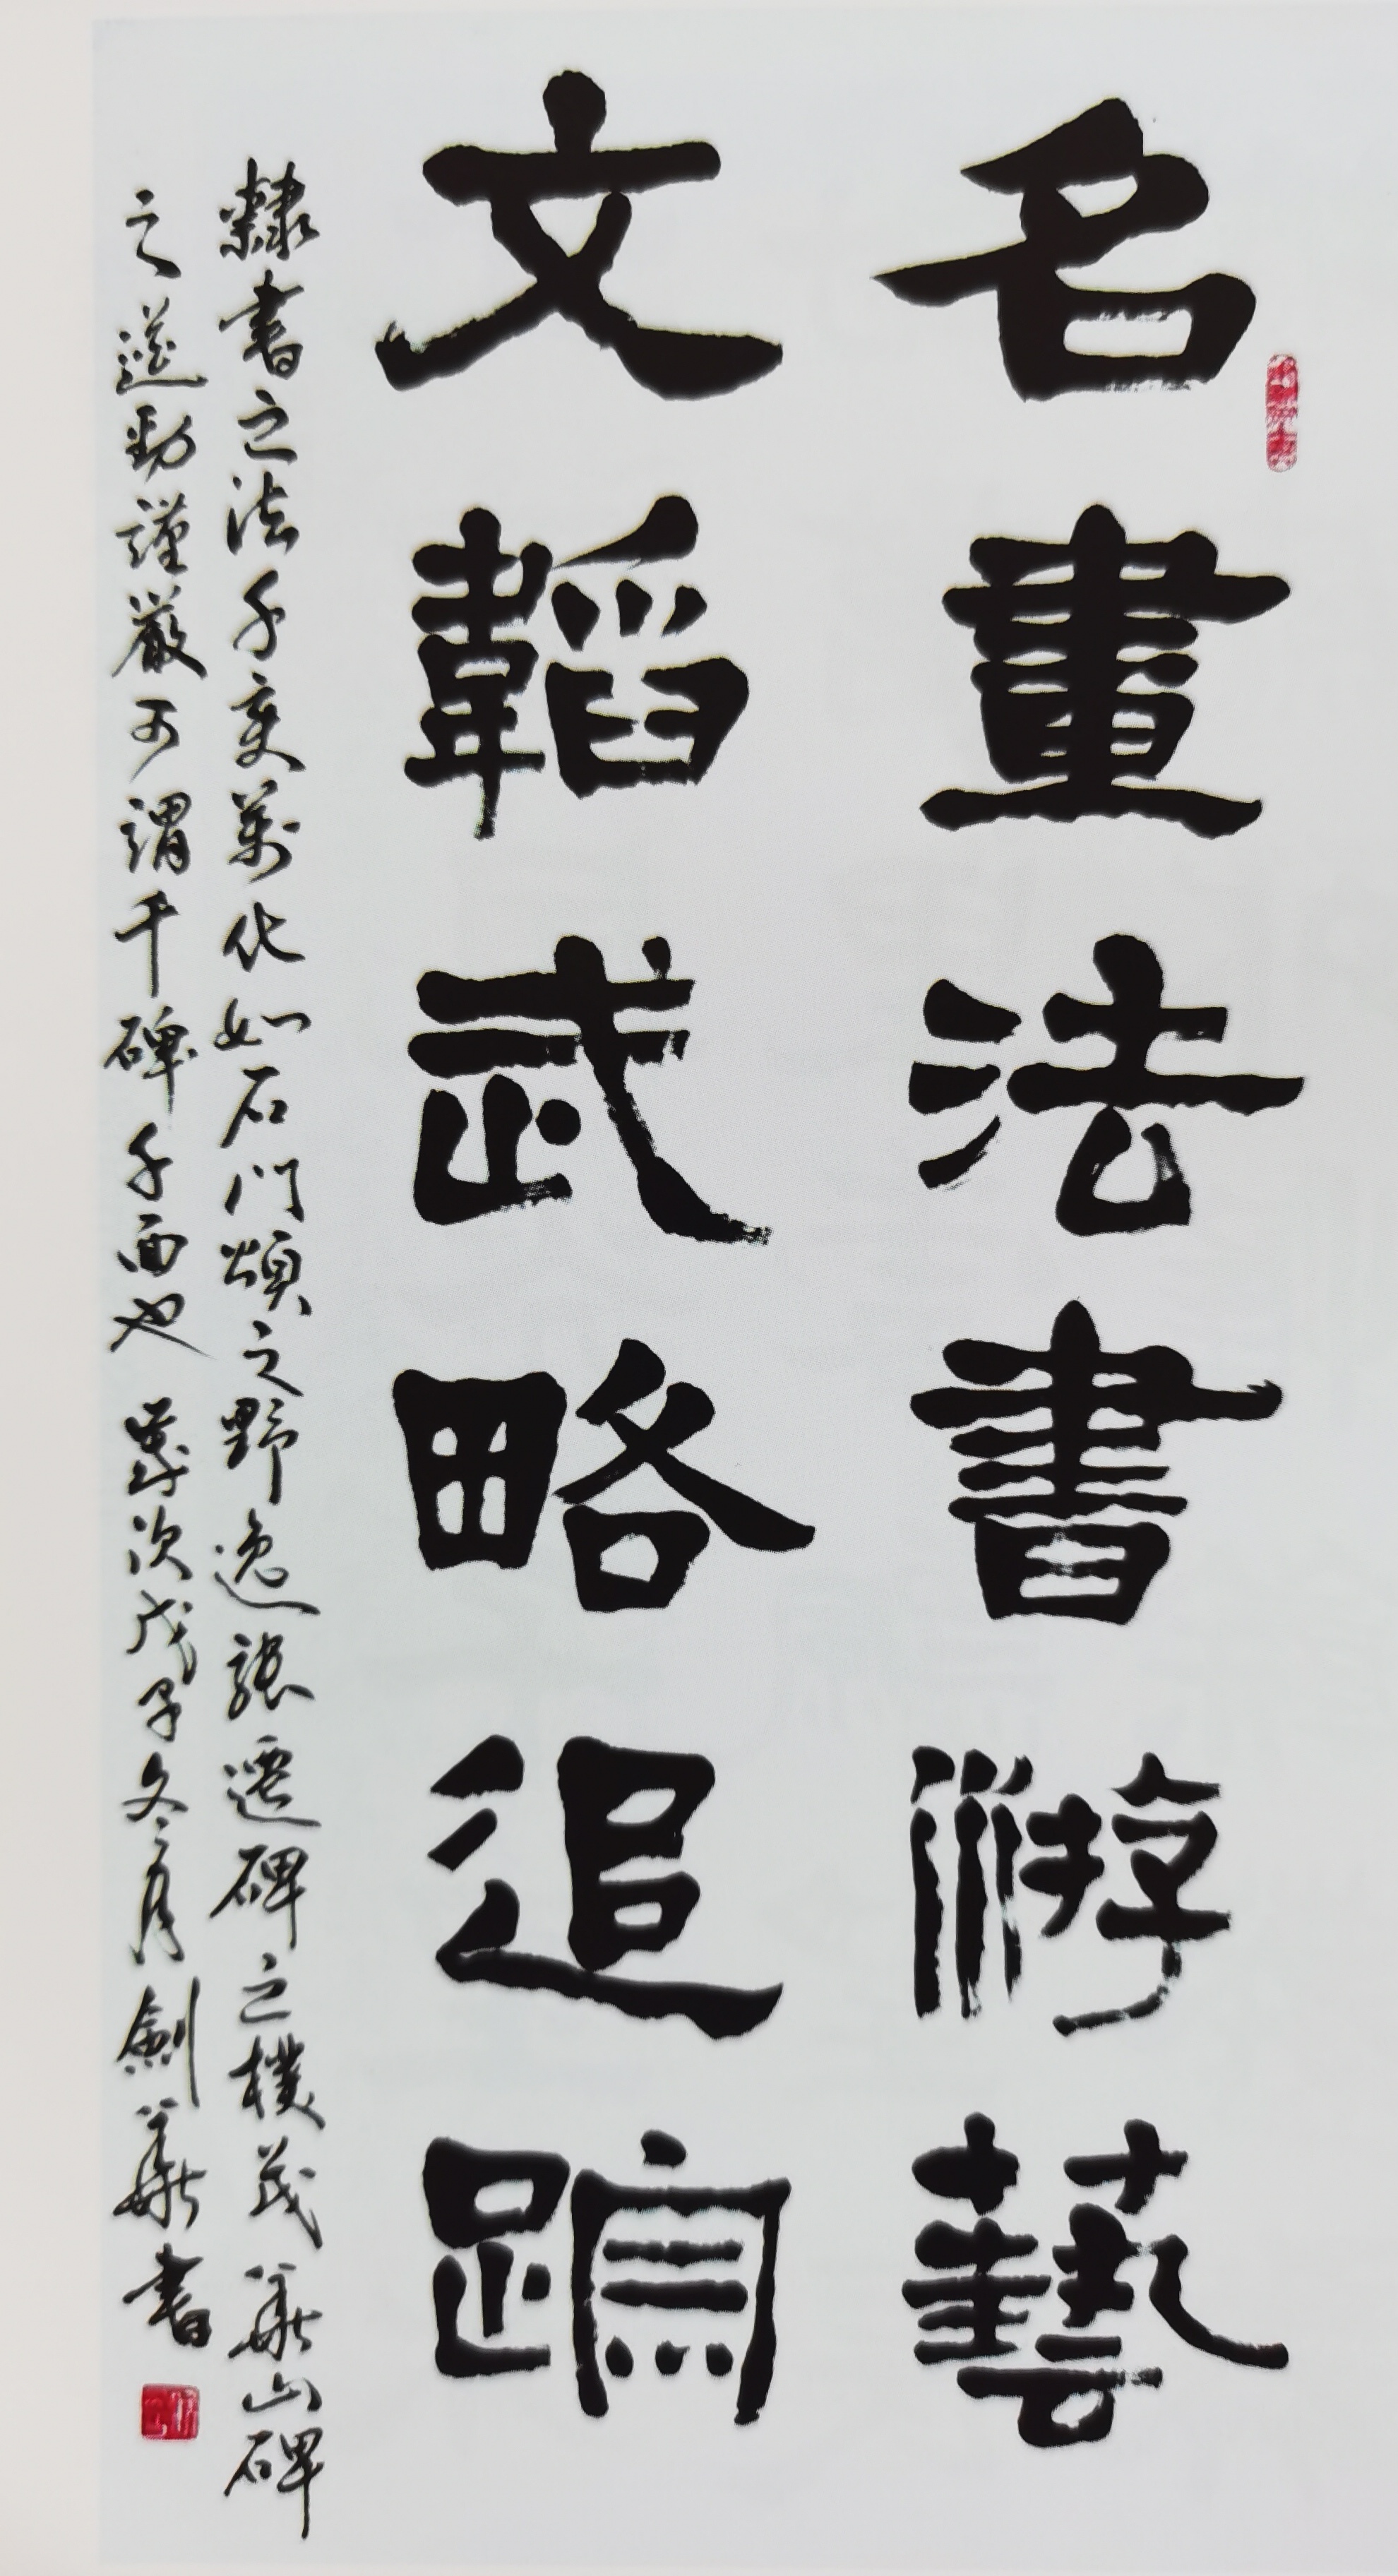 名畫法書游藝
文韜武略追踪
隸書之法千变萬化如石門頌之野逸張遷碑之樸茂華山碑
之遒勁謹嚴可謂千碑千面也 歲次戊子冬月劍華書